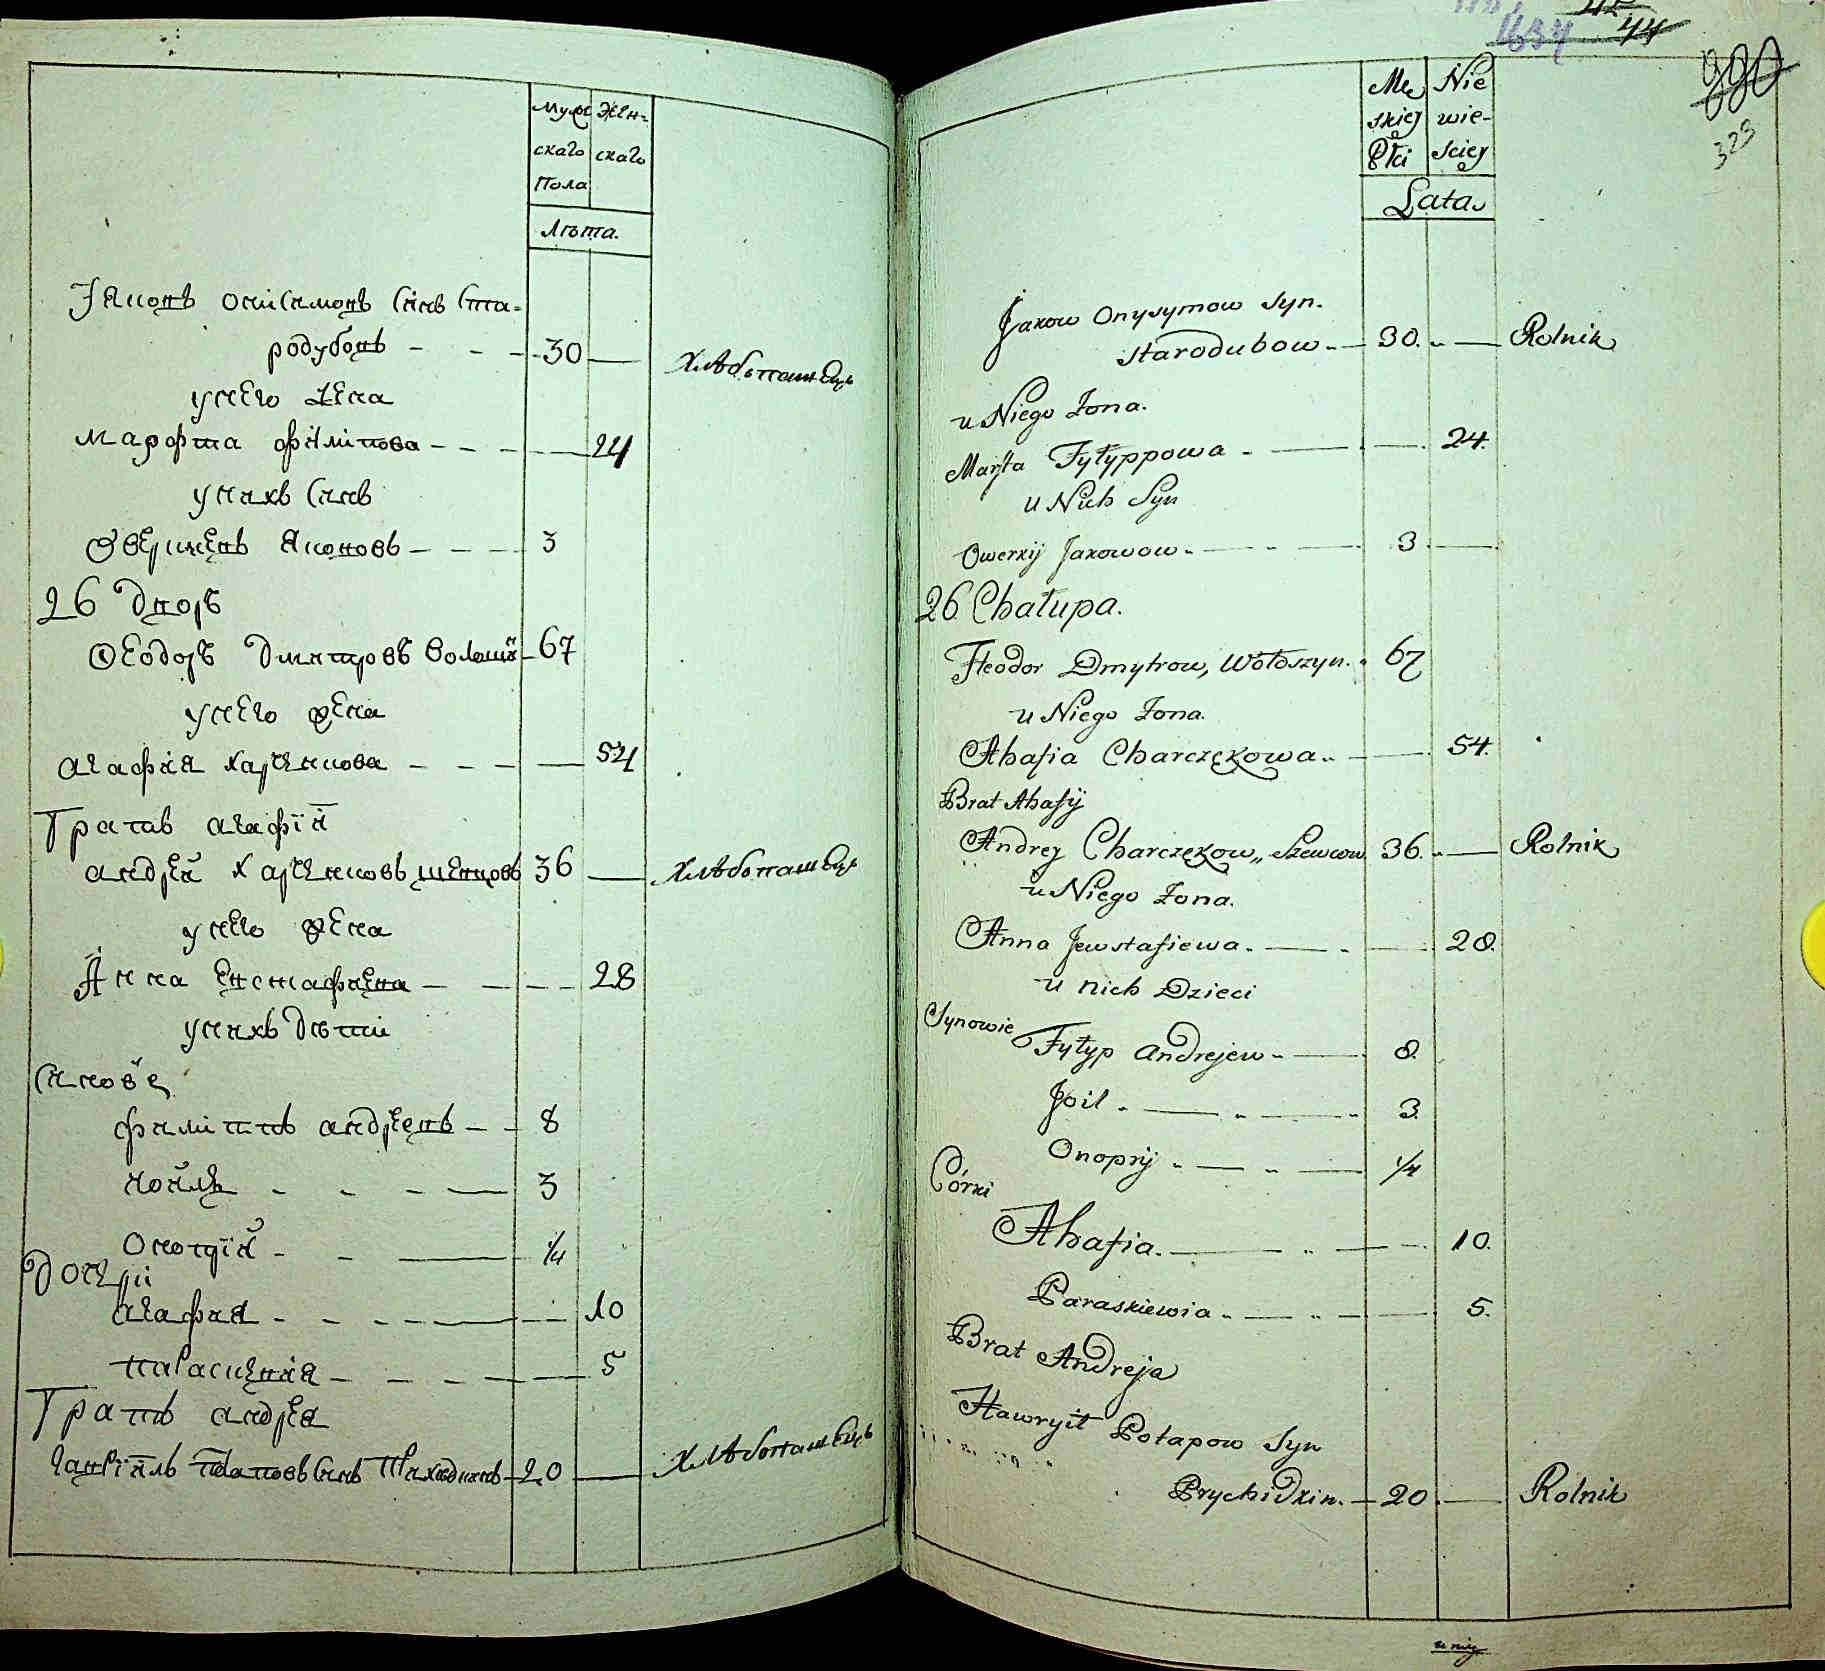 Муже Жен=
скаго скаго
Пола
Лѣта.
Іаковъ онисимовъ синъ Ста=
родубовъ - - - 30 — Хлѣбопашецъ
унего жена
Марфта филипова - - - 24
унихъ Синъ
Оверкиевъ Якововъ - - - 3
26 Дворъ
Ѳеодоръ Дмитровъ Волошин 67
унего жена
агафія харченкова - - - 54
Братъ агафіи
андрей Харченковъ шевцовъ 36 — Хлѣбопашецъ
унего жена
Анна Евстафиева - - - 28
унихъ дѣти
Синовѣ
филиппъ андреевъ - - 8
иоиль - - - 3
Онопрій - - 1/4
Дочери
агафия - - - 10
параскевия - - - 5
Братъ андрея
гавріилъ Потаповъ Синъ Прихидкинъ 20 — Хлѣбопашецъ
44
1634
44
880
329
Mę Nie
skiej wie-
Płci Sciey
Lata
Jakow Onysymow Syn.
Starodubow 30. — Rolnik
u Niego Żona.
Marfta Fyłyppowa - — 24.
u Nich Syn
Owerkij Jakowow - — 3 —
26 Chałupa.
Fteodor Dmytrow, Wołoszyn. 67
u Niego Żona.
Ahafia Charczękowa — 54.
Brat Ahafij
Andrej Charczękow„ Szewcow 36. — Rolnik
u Niego Żona.
Anna Jewstafiewa. — 28.
u nich Dzieci
Synowie
Fyłyp Andrejew - — 8.
Joil - — 3
Onoprij - — 1/4
Córki
Ahafia. — 10.
Paraskiewia - — 5.
Brat Andreja
Hawryił Potapow Syn
Prychidkin. — 20 — Rolnik
u niey